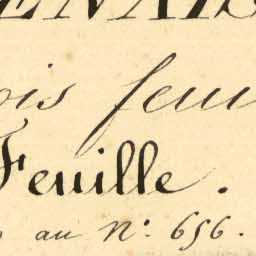 ENAIS
ois feui
Feuille.
au N.º 656.